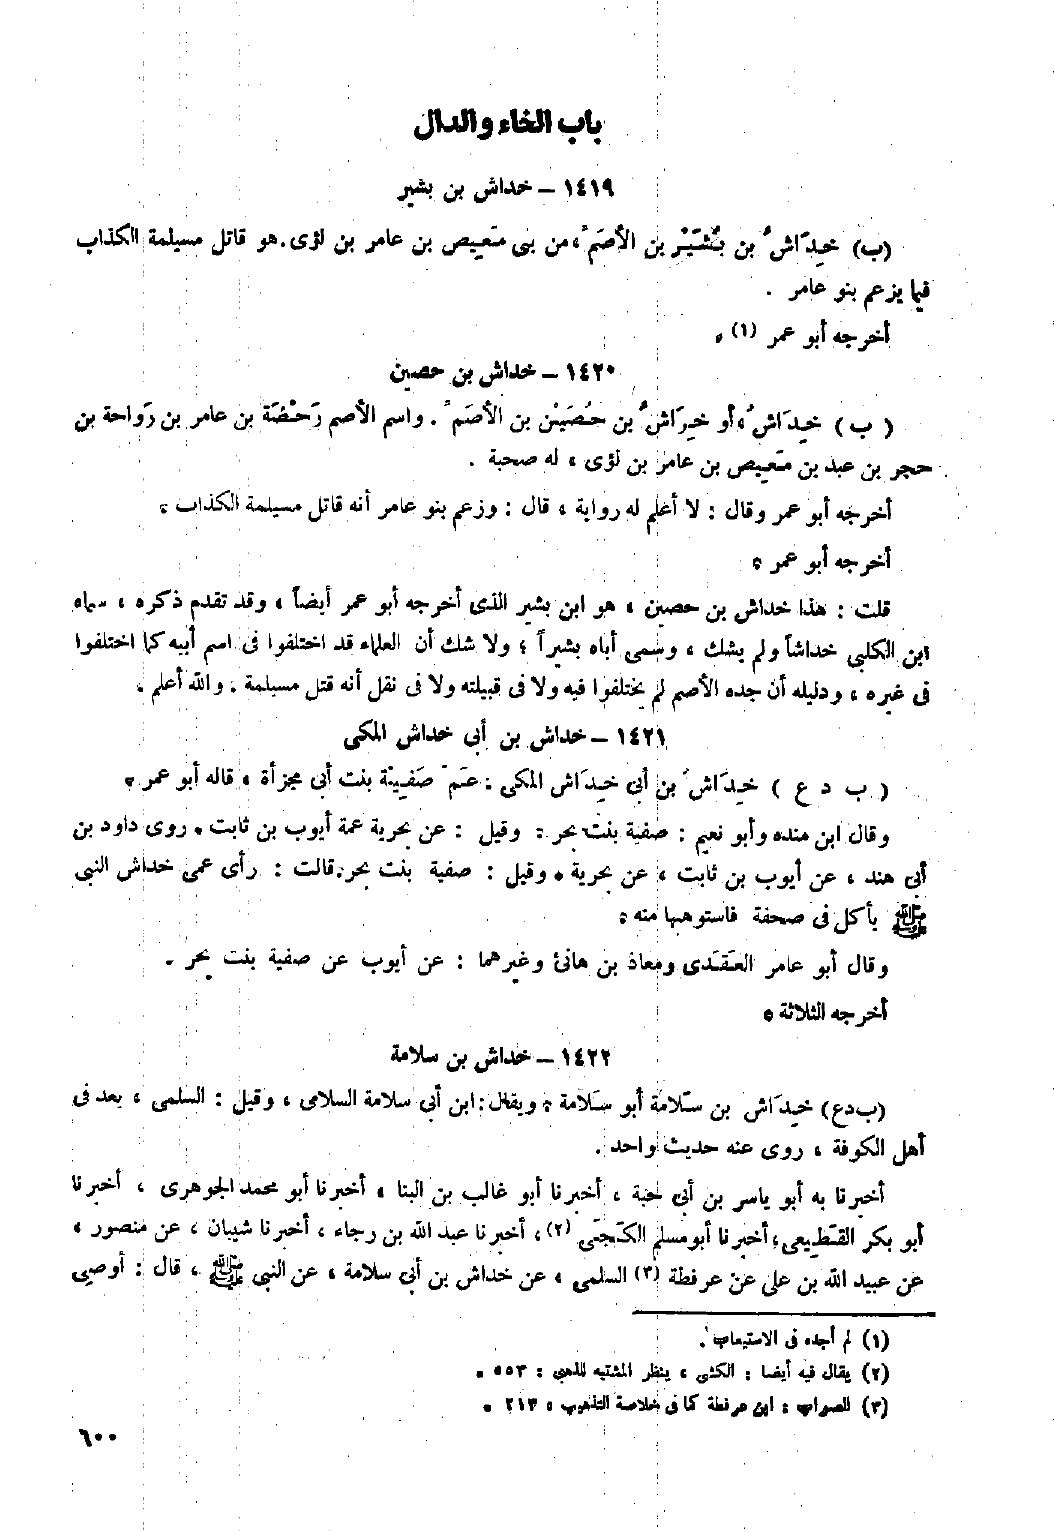 باب الخاء والدال
١٤١٩ – خداش بن بشير
(ب) خِدَاشُ بن بُشَيْرْ بن الأصَمِّ، من بنى مَعِيص بن عامر بن لؤى. هو قاتل مسيلمة الكذاب
فيما يزعم بنو عامر .
أخرجه أبو عمر (١) .
١٤٢٠ – خداش بن حصين
( ب ) خِدَاشُ، أو خِرَاشُ بن حُصَيْن بن الأصَمِّ . واسم الأصم رَحْضَة بن عامر بن رَواحة بن
حجر بن عبد بن مَعِيص بن عامر بن لؤى ، له صحبة .
أخرجه أبو عمر وقال : لا أعلم له رواية ، قال : وزعم بنو عامر أنه قاتل مسيلمة الكذاب .
أخرجه أبو عمر .
قلت : هذا خداش بن حصين ، هو ابن بشير الذى أخرجه أبو عمر أيضاً ، وقد تقدم ذكره ، سماه
ابن الكلبي خداشاً ولم يشك ، وسمى أباه بشيراً ؛ ولا شك أن العلماء قد اختلفوا فى اسم أبيه كما اختلفوا
فى غيره ، ودليله أن جده الأصم لم يختلفوا فيه ولا فى قبيلته ولا فى نقل أنه قتل مسيلمة . والله أعلم .
١٤٢١ – خداش بن أبى خداش المكى
( ب د ع ) خِدَاشُ بن أبى خِدَاش المكى . عَمّ صَفِيَّة بنت أبى مجزأة ، قاله أبو عمر .
وقال ابن منده وأبو نعيم : صفية بنت بحر . وقيل : عن بحرية عمة أيوب بن ثابت . روى داود بن
أبى هند ، عن أيوب بن ثابت ، عن بحرية . وقيل : صفية بنت بحر. قالت : رأى عمى خداش النبى
ﷺ يأكل فى صحفة فاستوهبها منه .
وقال أبو عامر العَقَدى ومعاذ بن هانئ وغيرهما : عن أيوب عن صفية بنت بحر .
أخرجه الثلاثة .
١٤٢٢ – خداش بن سلامة
(ب د ع) خِدَاش بن سَلامة أبو سَلامة . ويقال : ابن أبى سلامة السلامى ، وقيل : السلمى ، يعد فى
أهل الكوفة ، روى عنه حديث واحد .
أخبرنا به أبو ياسر بن أبى حبة ، أخبرنا أبو غالب بن البنا ، أخبرنا أبو محمد الجوهرى ، أخبرنا
أبو بكر القَطِيعى، أخبرنا أبو مسلم الكَجّى (٢)، أخبرنا عبد الله بن رجاء ، أخبرنا شيبان ، عن منصور ،
عن عبيد الله بن على عن عرفطة (٣) السلمى ، عن خداش بن أبى سلامة ، عن النبى ﷺ ، قال : أوصى
(١) لم أجده فى الاستيعاب .
(٢) يقال فيه أيضا : الكشى ، ينظر المشتبه للذهبى : ٥٥٣ .
(٣) الصواب : ابن عرفطة كما فى خلاصة التذهيب : ٢١٣ .
٦٠٠